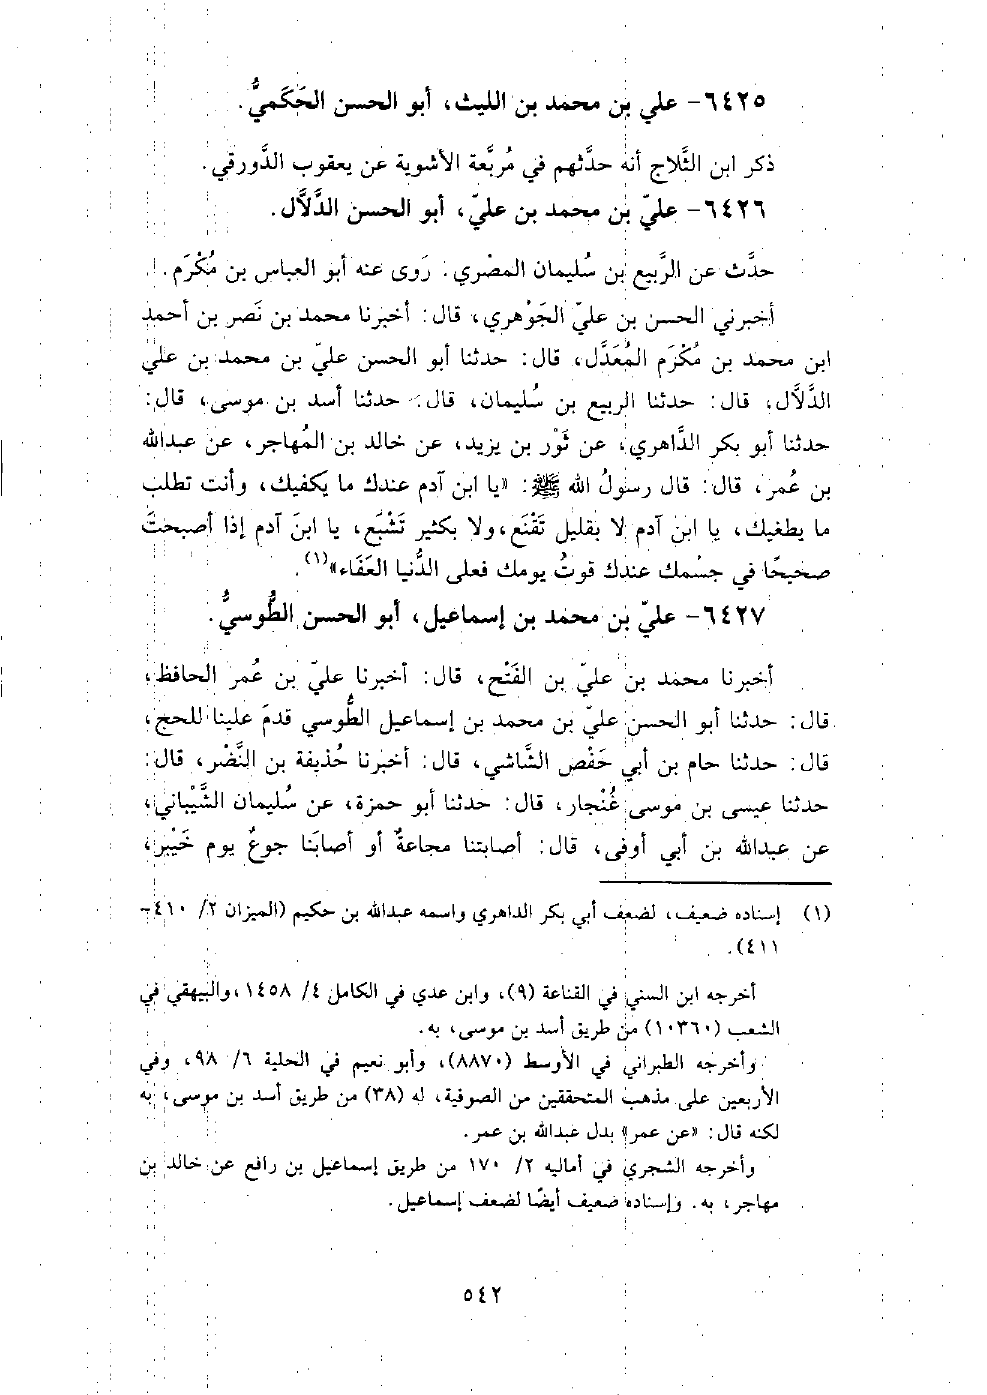 ٦٤٢٥- علي بن محمد بن الليث، أبو الحسن الحَكَميُّ.
ذكر ابن الثَّلاج أنه حدَّثهم في مُربَّعة الأشوية عن يعقوب الدَّورقي.
٦٤٢٦- عليّ بن محمد بن عليّ، أبو الحسن الدَّلاَّل.
حدَّث عن الرَّبيع بن سُليمان المصْري. رَوى عنه أبو العباس بن مُكْرَم.
أخبرني الحسن بن عليّ الجَوْهري، قال: أخبرنا محمد بن نَصر بن أحمد
ابن محمد بن مُكْرَم المُعَدَّل، قال: حدثنا أبو الحسن عليّ بن محمد بن علي
الدَّلاَّل، قال: حدثنا الربيع بن سُليمان، قال: حدثنا أسد بن موسى، قال:
حدثنا أبو بكر الدَّاهري، عن ثَوْر بن يزيد، عن خالد بن المُهاجر، عن عبدالله
بن عُمر، قال: قال رسولُ الله ﷺ: «يا ابن آدم عندك ما يكفيك، وأنت تطلب
ما يطغيك، يا ابن آدم لا بقليل تَقْنَع، ولا بكثير تَشْبَع، يا ابنَ آدم إذا أصبحتَ
صحيحًا في جسْمك عندك قوتُ يومك فعلى الدُّنيا العَفَاء»(١).
٦٤٢٧- عليّ بن محمد بن إسماعيل، أبو الحسن الطُّوسيُّ.
أخبرنا محمد بن عليّ بن الفَتْح، قال: أخبرنا عليّ بن عُمر الحافظ،
قال: حدثنا أبو الحسن عليّ بن محمد بن إسماعيل الطُّوسي قدمَ علينا للحج،
قال: حدثنا حام بن أبي حَفْص الشَّاشي، قال: أخبرنا حُذيفة بن النَّضْر، قال:
حدثنا عيسى بن موسى غُنْجار، قال: حدثنا أبو حمزة، عن سُليمان الشَّيْباني،
عن عبدالله بن أبي أوفى، قال: أصابتنا مجاعةٌ أو أصابَنا جوعٌ يوم خَيْبر،
(١) إسناده ضعيف، لضعف أبي بكر الداهري واسمه عبدالله بن حكيم (الميزان ٢/ ٤١٠-
٤١١).
أخرجه ابن السني في القناعة (٩)، وابن عدي في الكامل ٤/ ١٤٥٨، والبيهقي في
الشعب (١٠٣٦٠) من طريق أسد بن موسى، به.
وأخرجه الطبراني في الأوسط (٨٨٧٠)، وأبو نعيم في الحلية ٦/ ٩٨، وفي
الأربعين على مذهب المتحققين من الصوفية، له (٣٨) من طريق أسد بن موسى، به
لكنه قال: «عن عمر» بدل عبدالله بن عمر.
وأخرجه الشجري في أماليه ٢/ ١٧٠ من طريق إسماعيل بن رافع عن خالد بن
مهاجر، به. وإسناده ضعيف أيضًا لضعف إسماعيل.
٥٤٢